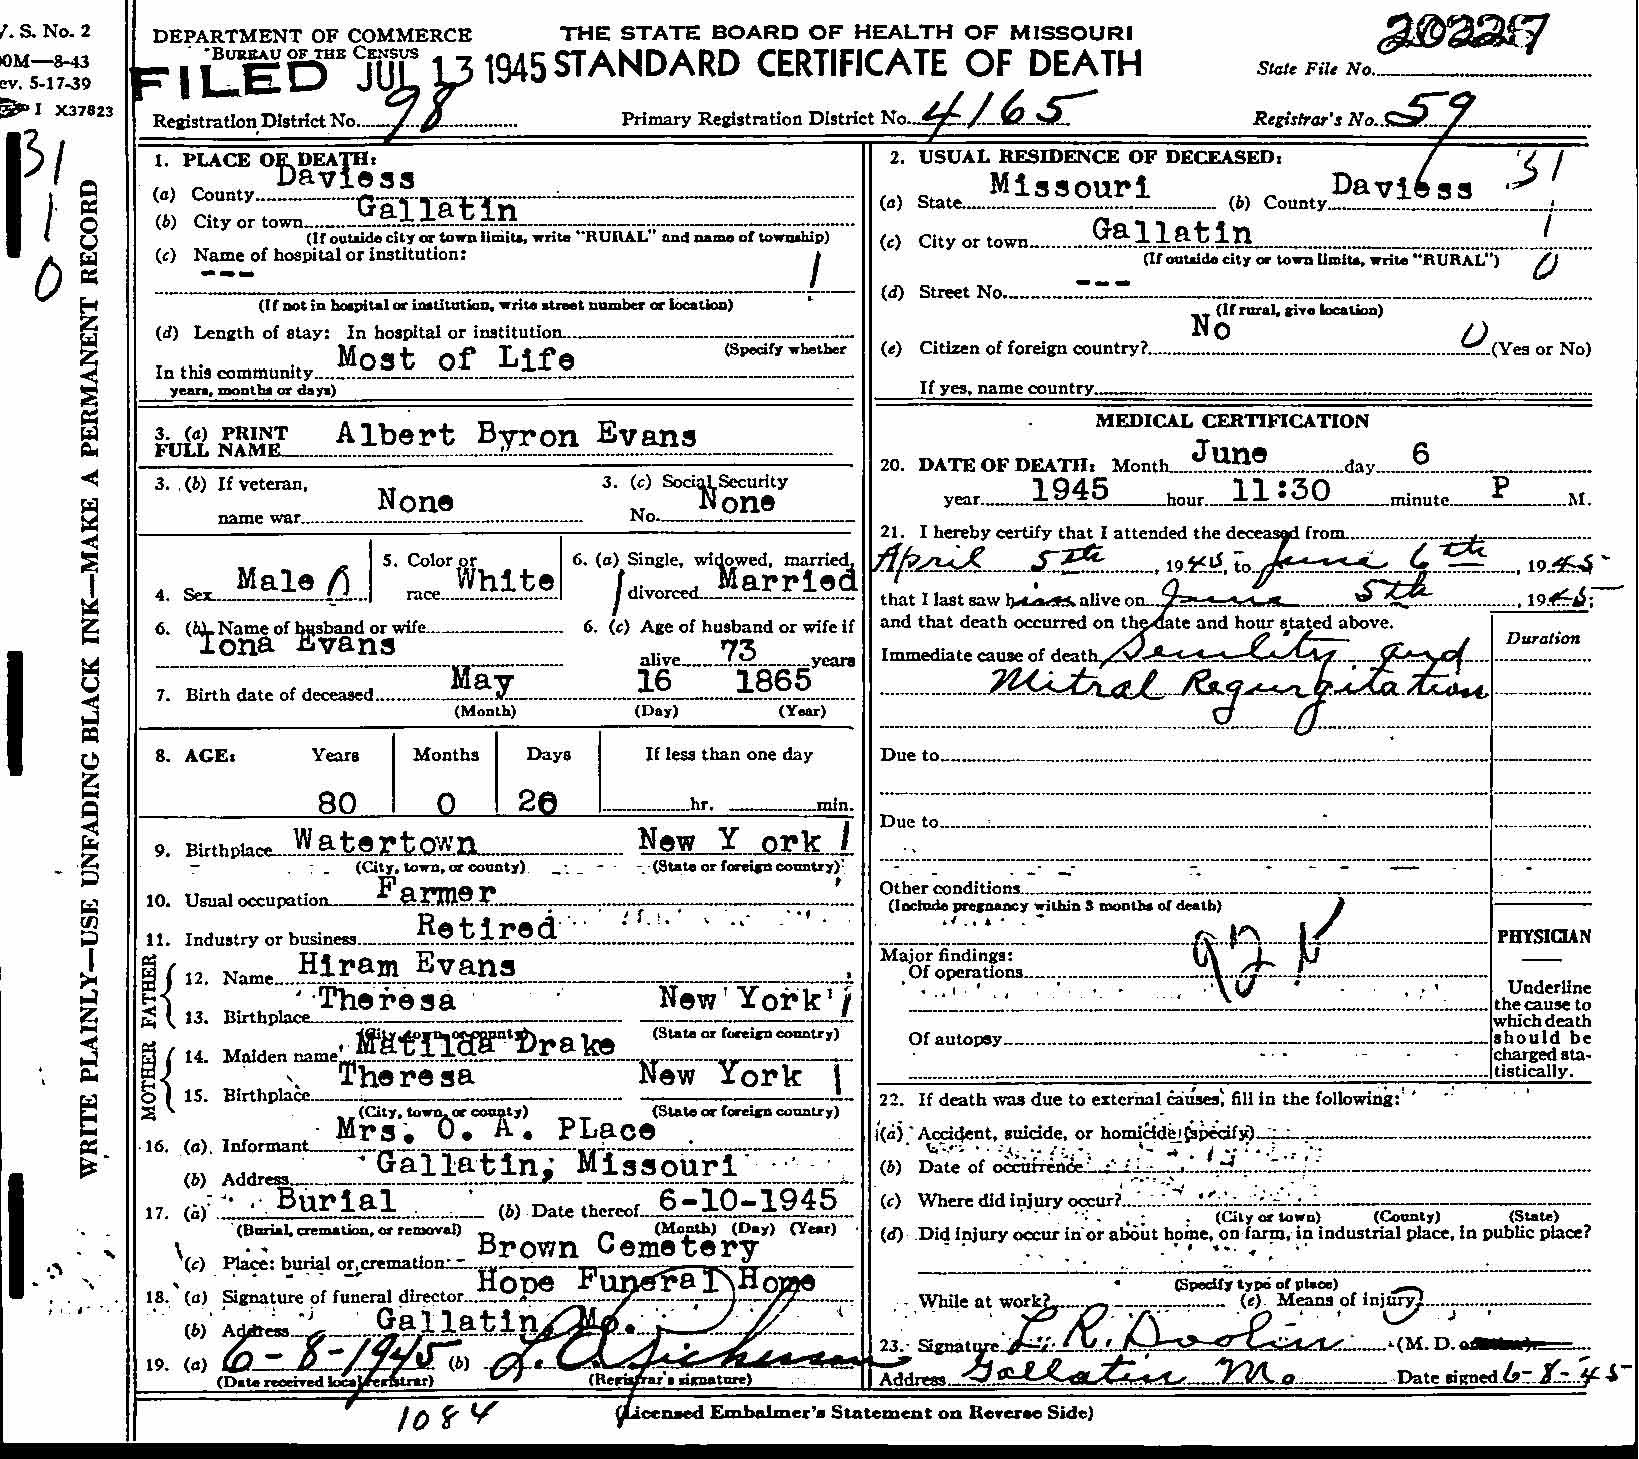 V. S. No. 2
00M—8-43
ev. 5-17-39
I X37823
31
1
0
WRITE PLAINLY—USE UNFADING BLACK INK—MAKE A PERMANENT RECORD
DEPARTMENT OF COMMERCE
BUREAU OF THE CENSUS
THE STATE BOARD OF HEALTH OF MISSOURI
STANDARD CERTIFICATE OF DEATH
FILED JUL 13 1945
State File No. 20227
Registration District No. 98
Primary Registration District No. 4165
Registrar's No. 59
1. PLACE OF DEATH:
(a) County Daviess
(b) City or town Gallatin
(If outside city or town limits, write "RURAL" and name of township)
(c) Name of hospital or institution:
--- 1
(If not in hospital or institution, write street number or location)
(d) Length of stay: In hospital or institution
(Specify whether
In this community Most of Life
years, months or days)
2. USUAL RESIDENCE OF DECEASED: 31
(a) State Missouri (b) County Daviess
(c) City or town Gallatin 1
(If outside city or town limits, write "RURAL") 0
(d) Street No. ---
(If rural, give location)
(e) Citizen of foreign country? No 0 (Yes or No)
If yes, name country
3. (a) PRINT
FULL NAME Albert Byron Evans
3. (b) If veteran,
name war None
3. (c) Social Security
No. None
4. Sex Male 0
5. Color or
race White
6. (a) Single, widowed, married,
divorced Married
6. (b) Name of husband or wife
Iona Evans
6. (c) Age of husband or wife if
alive 73 years
7. Birth date of deceased May 16 1865
(Month) (Day) (Year)
8. AGE: Years Months Days If less than one day
80 0 20 hr. min.
9. Birthplace Watertown New Y ork 1
(City, town, or county) (State or foreign country)
10. Usual occupation Farmer
11. Industry or business Retired
FATHER
12. Name Hiram Evans
13. Birthplace Theresa New York 1
(City, town, or county) (State or foreign country)
MOTHER
14. Maiden name Matilda Drake
15. Birthplace Theresa New York 1
(City, town, or county) (State or foreign country)
16. (a) Informant Mrs. O. A. PLace
(b) Address Gallatin, Missouri
17. (a) Burial (b) Date thereof 6-10-1945
(Burial, cremation, or removal) (Month) (Day) (Year)
(c) Place: burial or cremation Brown Cemetery
18. (a) Signature of funeral director Hope Funeral Home
(b) Address Gallatin, Mo.
19. (a) 6-8-1945 (b)
(Date received local registrar) (Registrar's signature)
MEDICAL CERTIFICATION
20. DATE OF DEATH: Month June day 6
year 1945 hour 11:30 minute P M.
21. I hereby certify that I attended the deceased from
April 5th, 1945, to June 6th, 1945
that I last saw him alive on June 5th, 1945;
and that death occurred on the date and hour stated above.
Duration
Immediate cause of death Senility and
Mitral Regurgitation
Due to
Due to
Other conditions
(Include pregnancy within 3 months of death)
Major findings:
Of operations
92
Of autopsy
PHYSICIAN
Underline
the cause to
which death
should be
charged sta-
tistically.
22. If death was due to external causes, fill in the following:
(a) Accident, suicide, or homicide (specify)
(b) Date of occurrence
(c) Where did injury occur?
(City or town) (County) (State)
(d) Did injury occur in or about home, on farm, in industrial place, in public place?
(Specify type of place)
While at work? (e) Means of injury
23. Signature L. R. Doolin (M. D. or
Address Gallatin Mo. Date signed 6-8-45
1084
(Licensed Embalmer's Statement on Reverse Side)